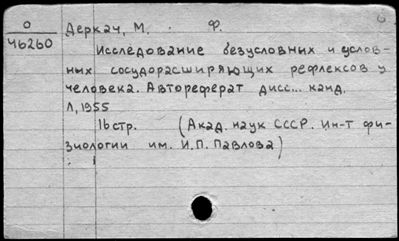 О
46260
Деркач, М. Ф.
Исследование безусловных и услов-
ных сосудорасширяющих рефлексов у
человека. Автореферат дисс... канд.
Л, 1955
16 стр. (Акад. наук СССР. Ин-т фи-
зиологии им. И.П. Павлова)